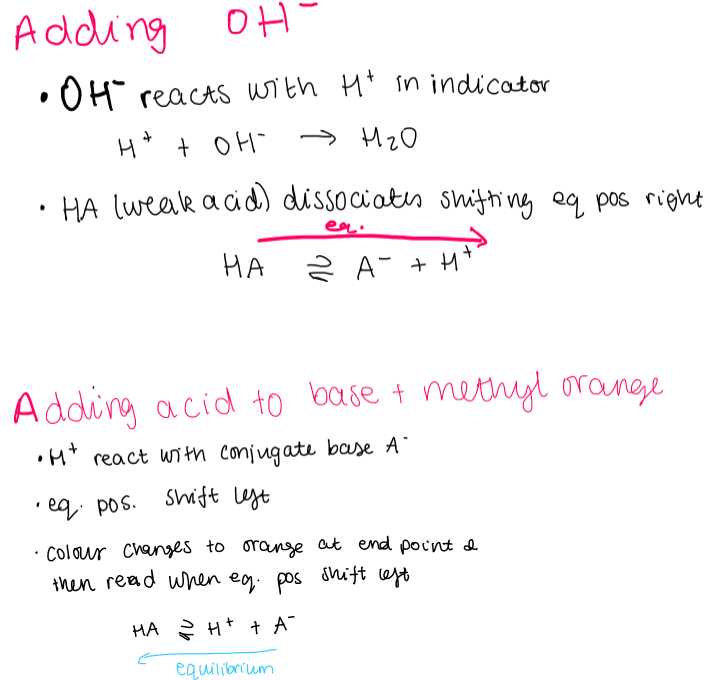 Adding OH⁻
• OH⁻ reacts with H⁺ in indicator
H⁺ + OH⁻ → H₂O
• HA (weak acid) dissociates shifting eq pos right
eq.
HA ⇌ A⁻ + H⁺
Adding acid to base + methyl orange
• H⁺ react with conjugate base A⁻
• eq. pos. shift left
• colour changes to orange at end point &
then read when eq. pos shift left
HA ⇌ H⁺ + A⁻
equilibrium